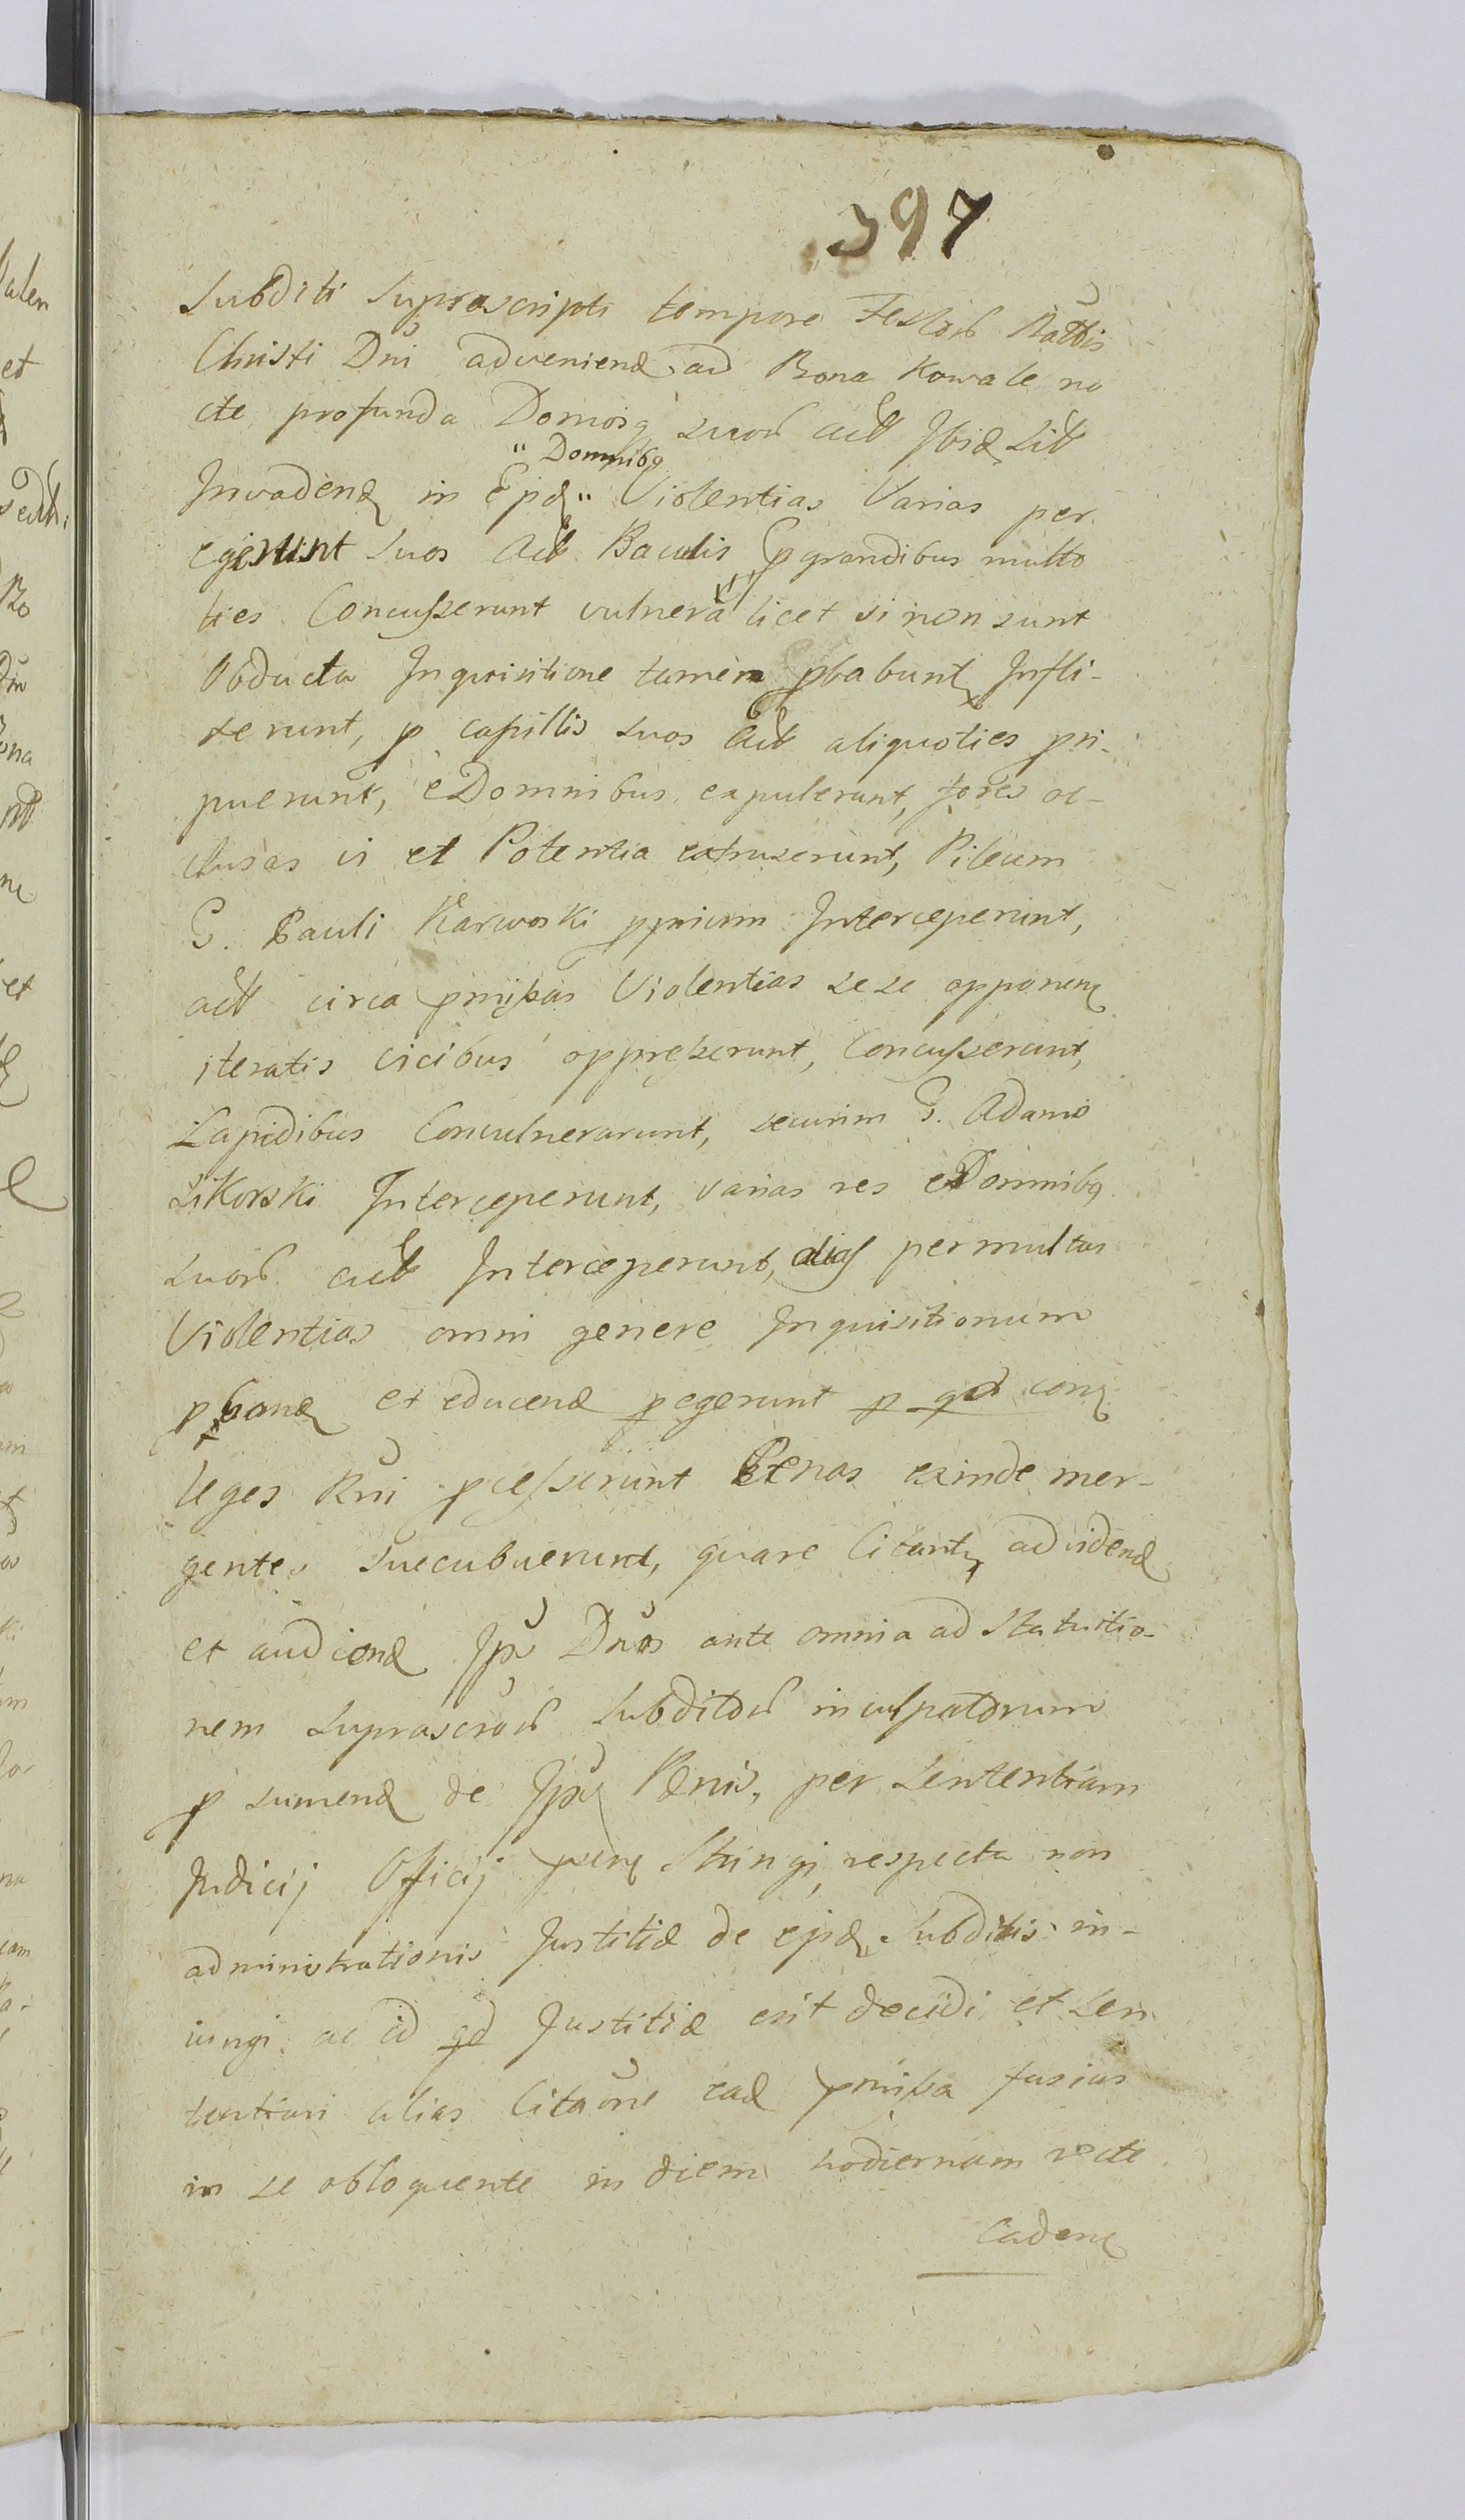 397
Subditi Suprascripti tempore Festor Natbis
Christi Dni adveniend ad Bona Kowale no
cte profunda Domosq suor act Ibid sit
" Domnibq
Invadend in Ejpd " Violentias Varias per
egerunt suos Act Baculis pgrandibus multo
ties Concusserunt vulnera licet si non sunt
Obducta Inquisitione tamen pbabunt Infli-
xerunt, p capillis suos Act aliquoties pri-
puerunt, e Domnibus expulerunt, fores oc-
clusas vi et Potentia extruserunt, Pileum
G. Pauli Karwoski pprium Interceperunt,
act circa pmissas Violentias sese opponen
iteratis vicibus oppresserunt, Concusserunt,
Lapidibus Convulnerarunt, securim G. Adamo
Sikorski Interceperunt, varias res e Domnibq
suor act Interceperunt, alias permultas
Violentias omni genere Inquisitionum
pband et educend pegerunt p qd con
leges Rni pcesserunt Penas exinde mer-
gentes succubuerunt, quare Citantr ad vidend
et audiend Ips Dnos ante omnia ad Statuitio-
nem suprascror Subditor inculpatorum
p sumend de Ips Penis, per Sententiam
Judicij Officij Stringi, respectu non
administrationis Justitiæ de ejpd Subditis in-
iungi ac id qd Justitiæ erit decidi et sen
tentiari alias Citaone ead pmissa fusius
in se obloquente in diem hodiernam recte
Caden